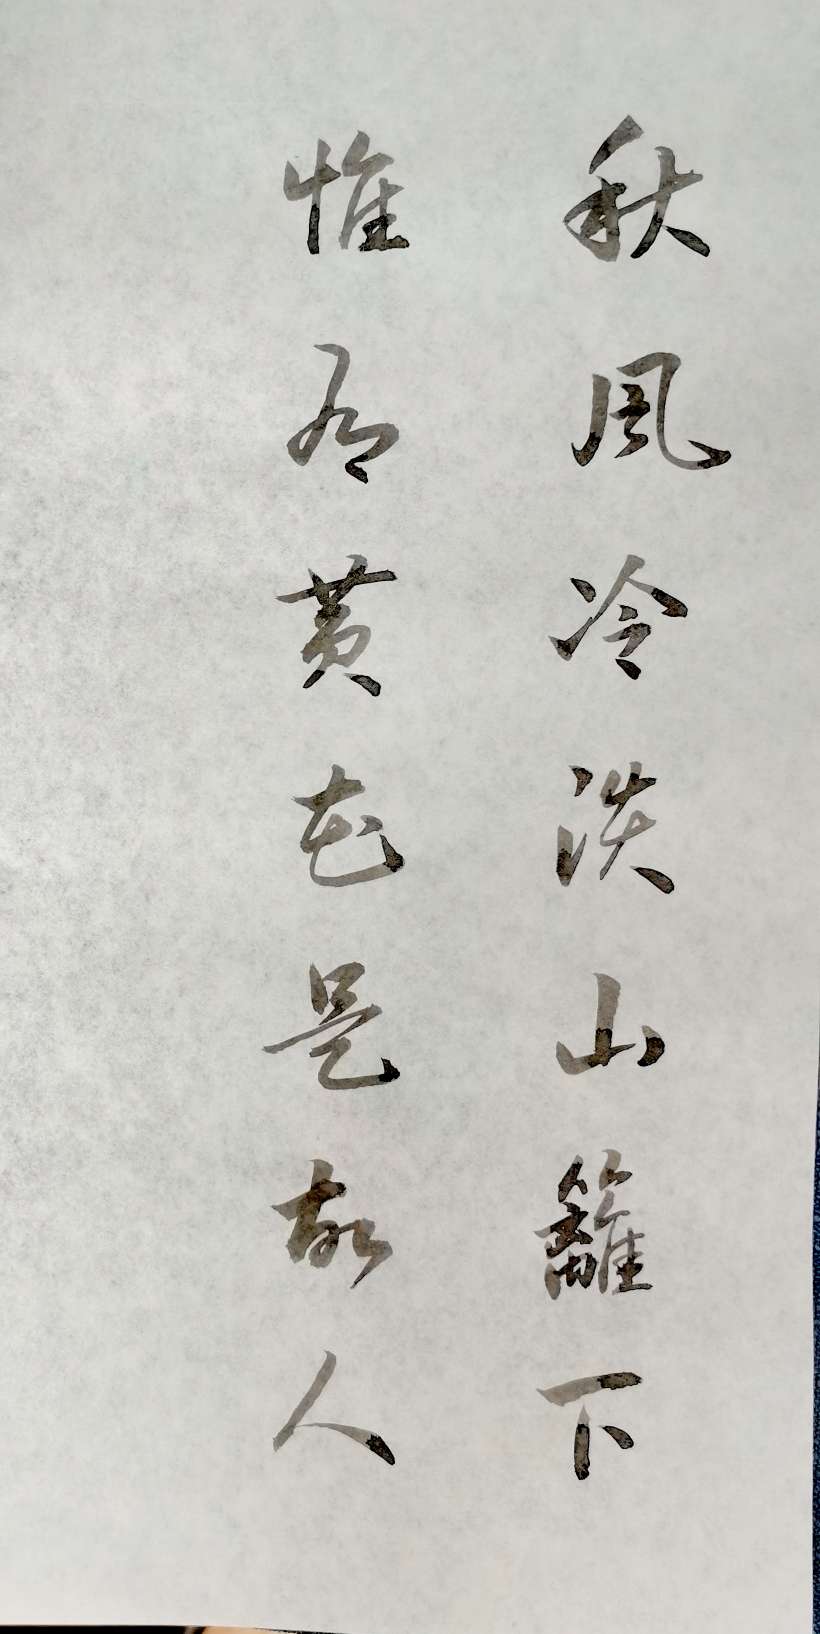 秋风冷淡山籬下
惟有黄花是故人